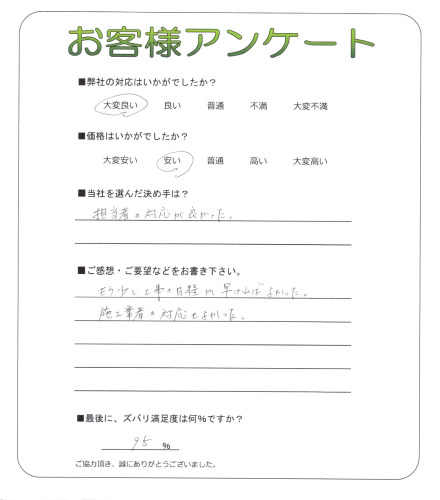 お客様アンケート
■弊社の対応はいかがでしたか?
大変良い 良い 普通 不満 大変不満
■価格はいかがでしたか?
大変安い 安い 普通 高い 大変高い
■当社を選んだ決め手は?
担当者の対応が良かった。
■ご感想・ご要望などをお書き下さい。
もう少し工事の日程が早ければよかった。
施工業者の対応もよかった。
■最後に、ズバリ満足度は何%ですか?
95 %
ご協力頂き、誠にありがとうございました。